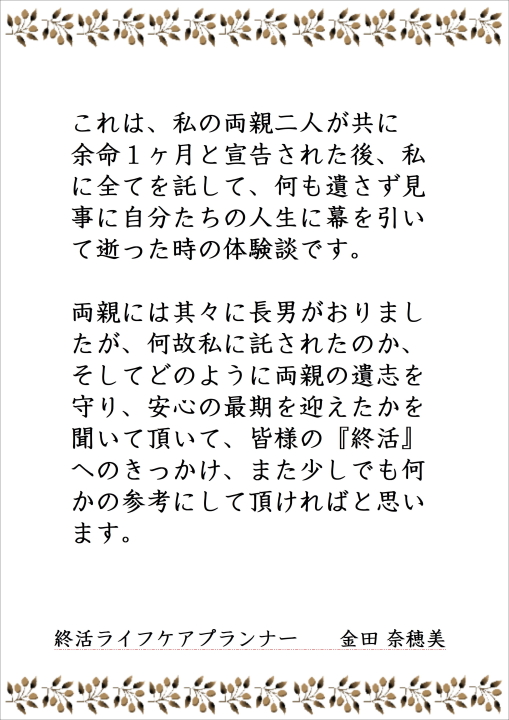 これは、私の両親二人が共に
余命１ヶ月と宣告された後、私
に全てを託して、何も遺さず見
事に自分たちの人生に幕を引い
て逝った時の体験談です。
両親には其々に長男がおりまし
たが、何故私に託されたのか、
そしてどのように両親の遺志を
守り、安心の最期を迎えたかを
聞いて頂いて、皆様の『終活』
へのきっかけ、また少しでも何
かの参考にして頂ければと思い
ます。
終活ライフケアプランナー　　金田 奈穂美